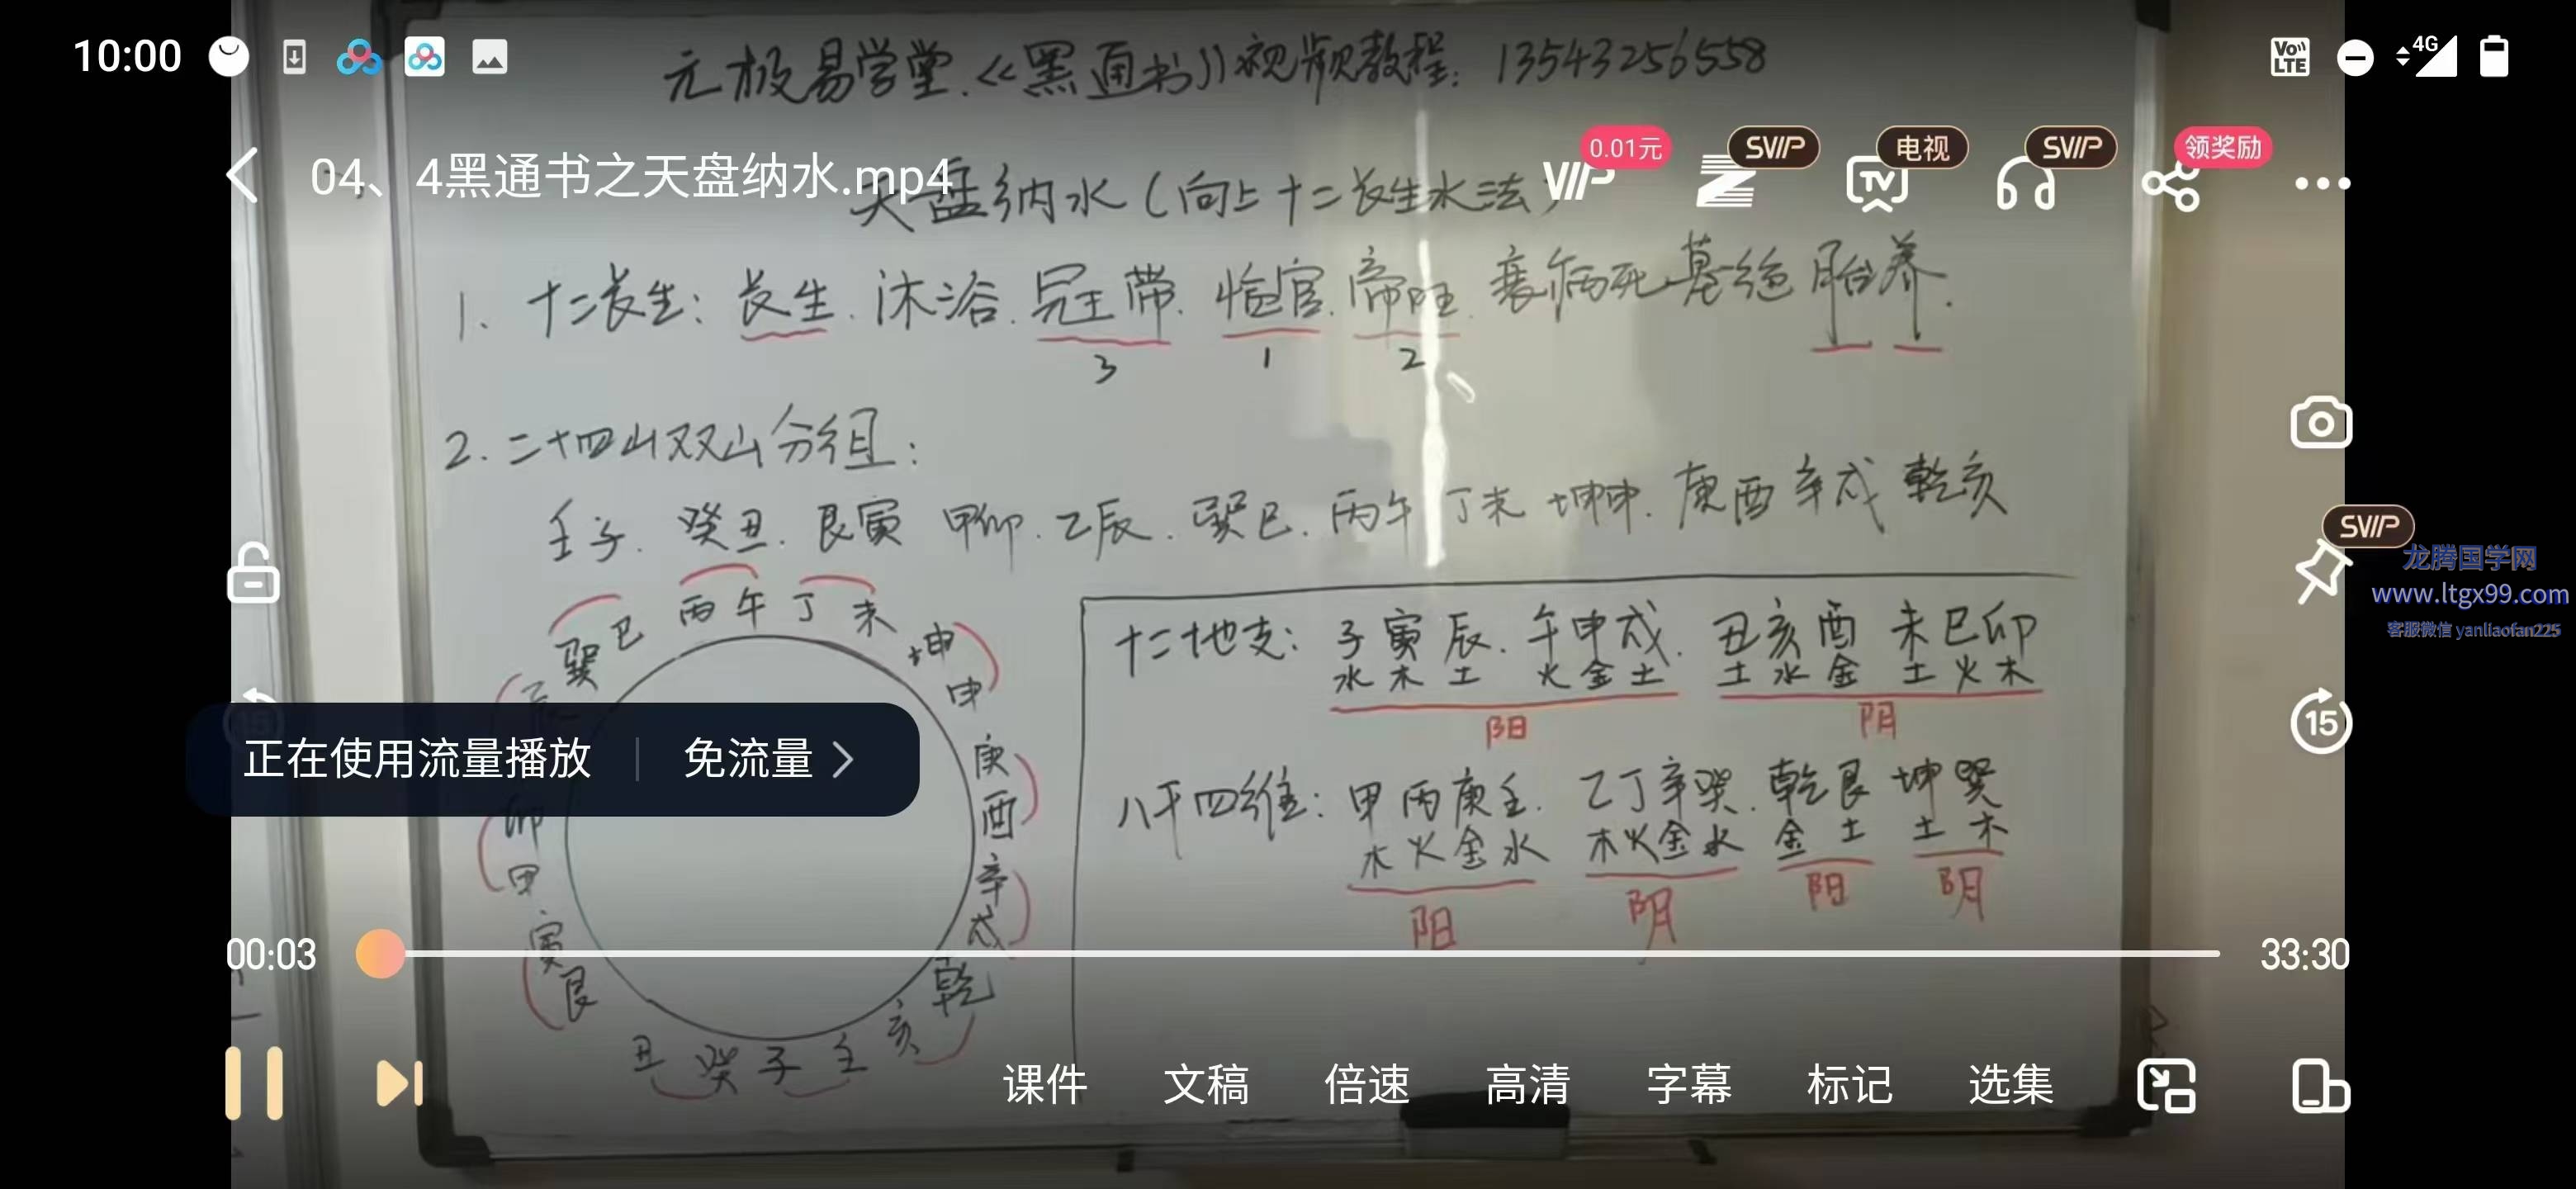 10:00
4G
VoLTE
元极易学堂.《黑通书》视频教程：13543256558
04、4黑通书之天盘纳水.mp4
0.01元
VIP
SVIP
电视
TV
SVIP
领奖励
天盘纳水（向上十二长生水法）
1、十二长生：长生．沐浴．冠带．临官．帝旺．衰病死墓绝胎养．
3 1 2
2．二十四山双山分组：
壬子．癸丑．艮寅 甲卯．乙辰．巽巳．丙午 丁未 坤申．庚酉 辛戌 乾亥
SVIP
龙腾国学网
www.ltgx99.com
客服微信 yanliaofan225
巽巳 丙午 丁未 坤申 庚酉 辛戌 乾亥 壬子 癸丑 艮寅 甲卯 乙辰
十二地支：子寅辰．午申戌．丑亥酉 未巳卯
水木土 火金土 土水金 土火木
阳 阴
15
正在使用流量播放 免流量
八干四维：甲丙庚壬．乙丁辛癸．乾艮 坤巽
木火金水 木火金水 金土 土木
阳 阴 阳 阴
00:03
33:30
课件 文稿 倍速 高清 字幕 标记 选集